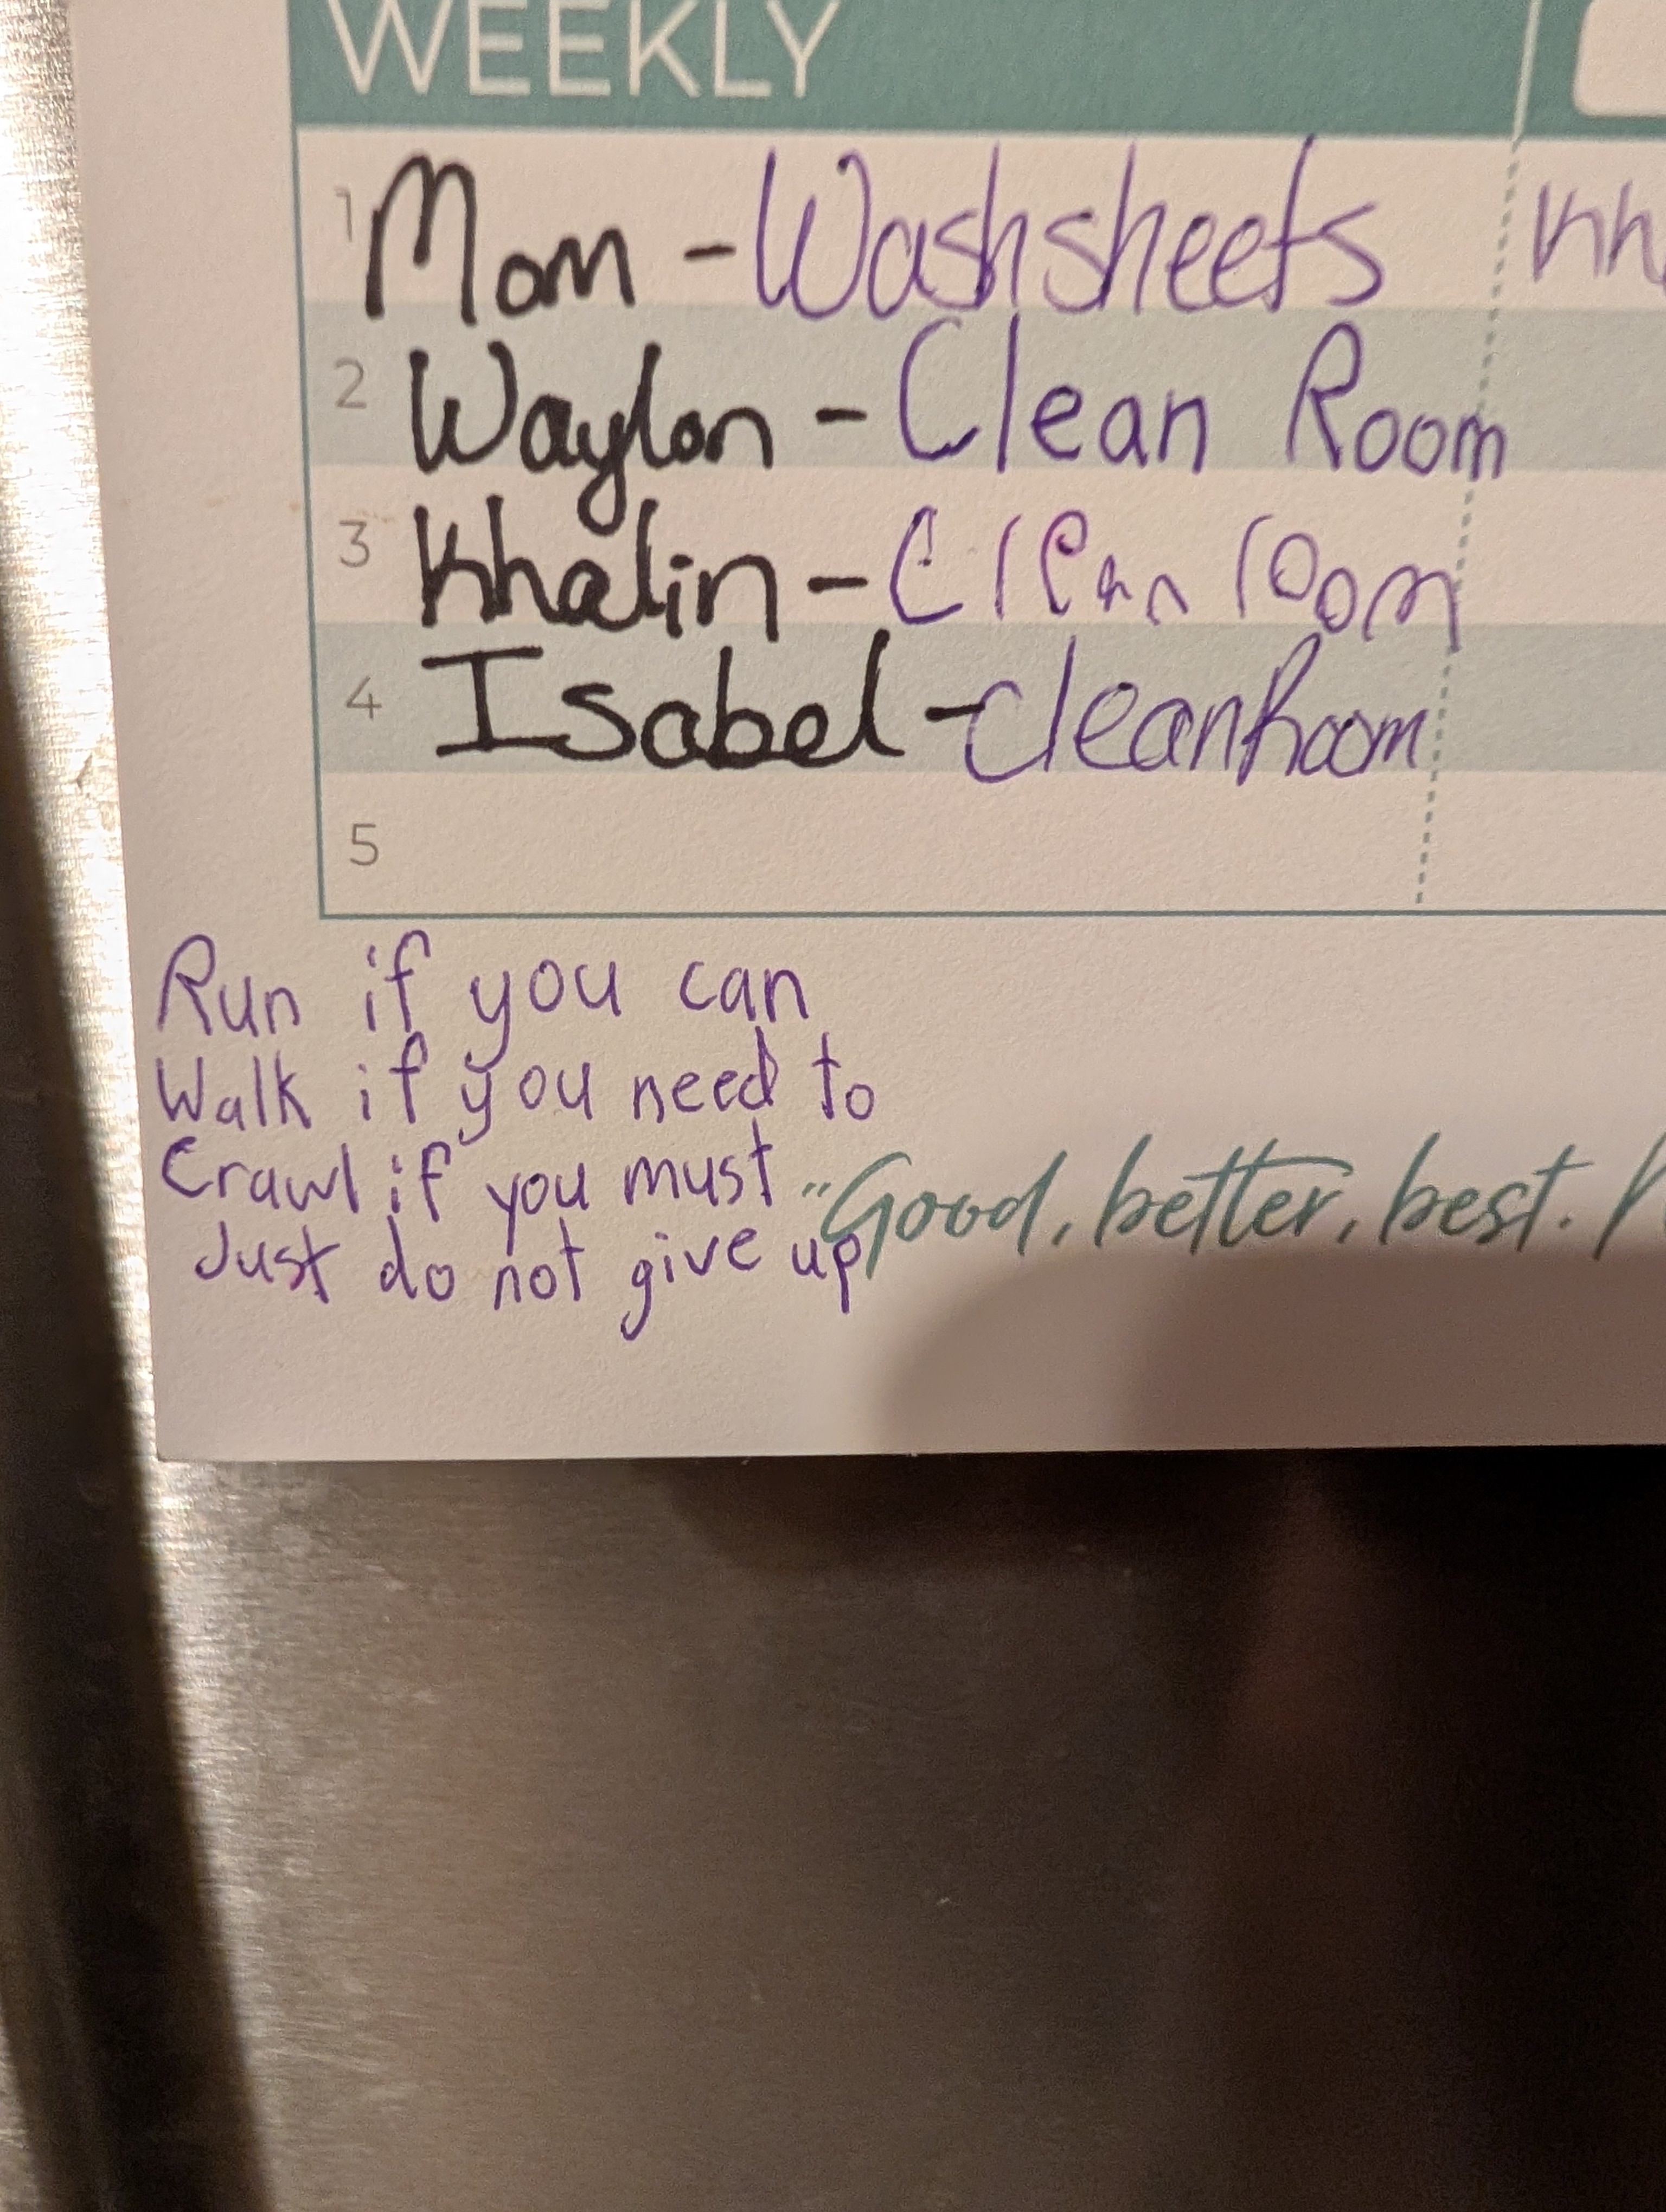 WEEKLY
1 Mom - Wash sheets
2 Waylon - Clean Room
3 Khalin - Clean room
4 Isabel - clean Room
5
Run if you can
Walk if you need to
Crawl if you must
Just do not give up
"Good, better, best.